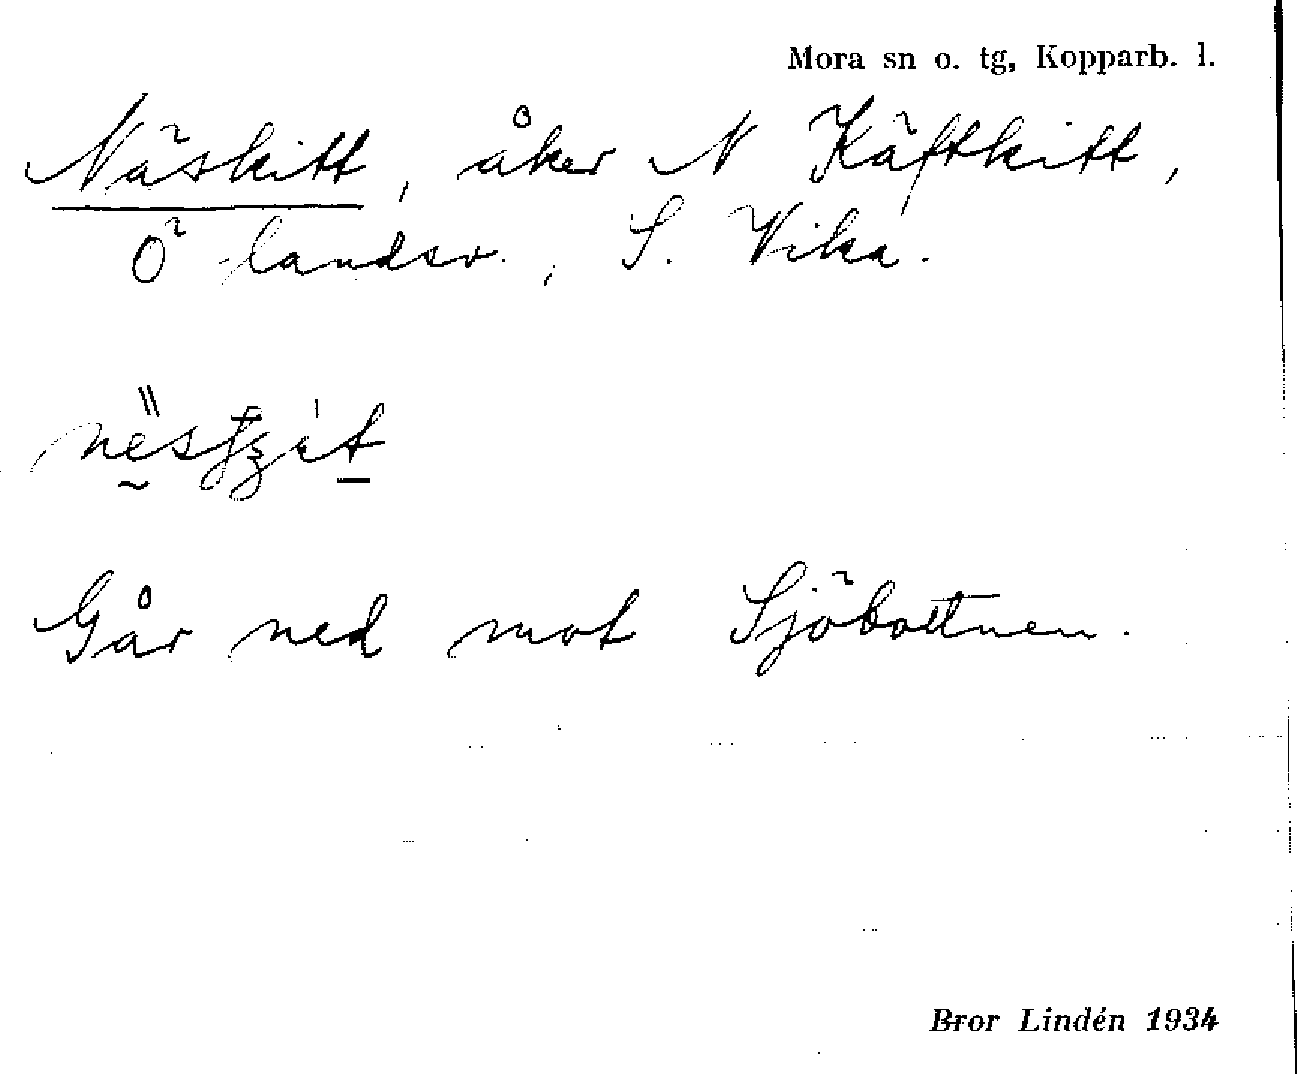 Mora sn o. tg, Kopparb. l.
Näskitt, åker N Käftkitt,
Ö landsv., S. Vika.
Går ned mot Sjöbottnen.
Bror Lindén 1934